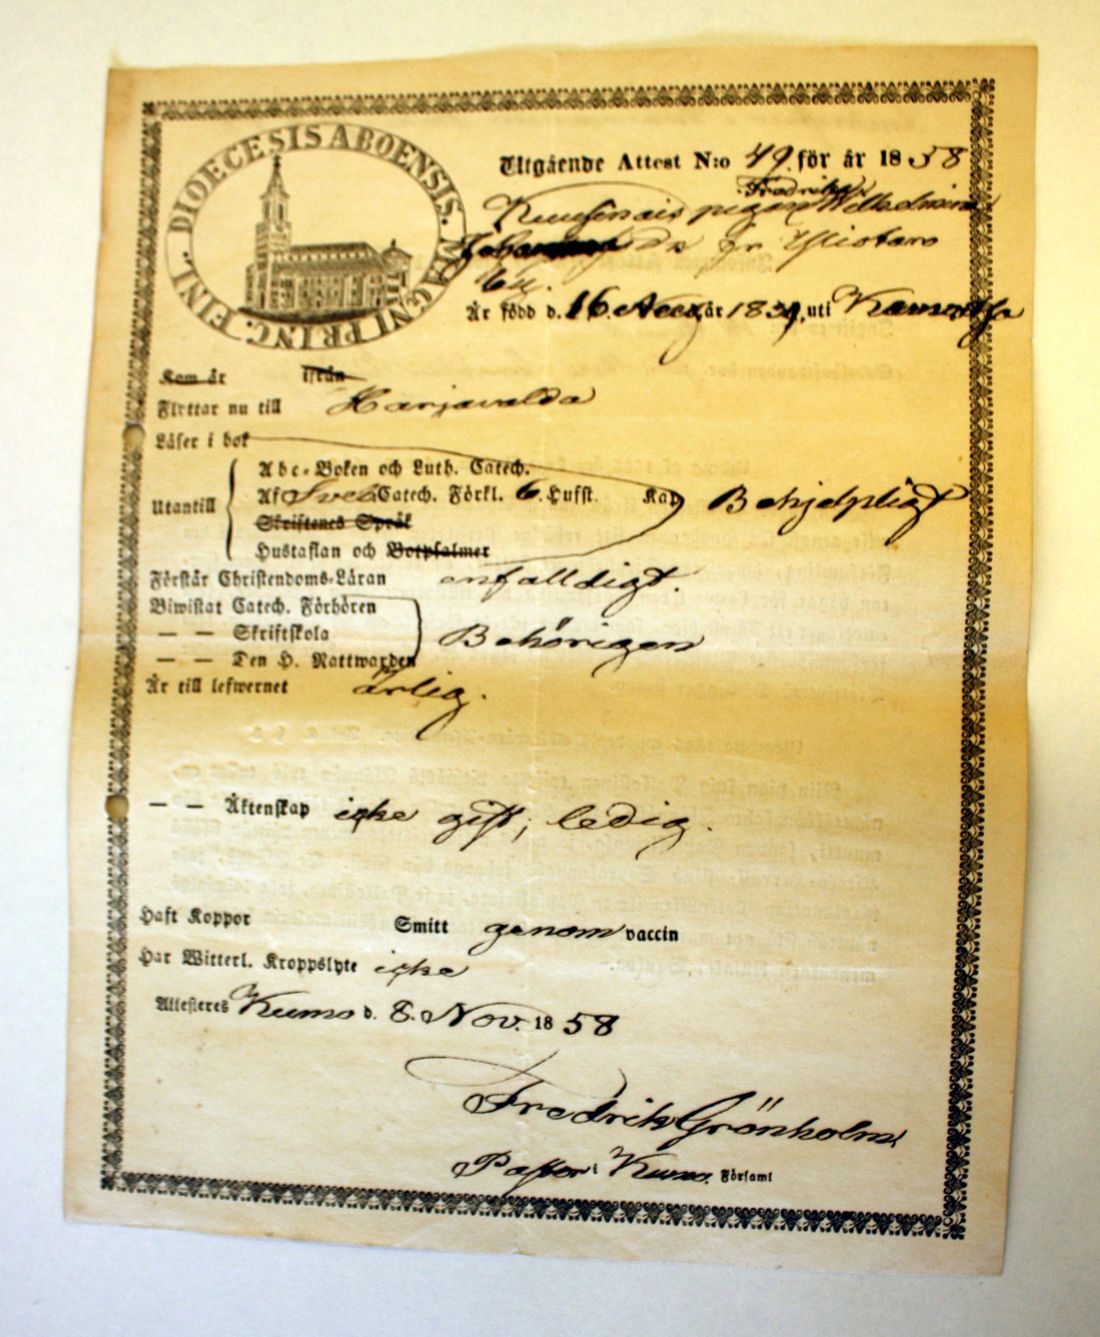 DIOECESIS ABOENSIS. MAGNI PRINC. FINL.
Utgående Attest N:o 49. för år 1858
Fredrika
pigan Wilhelmina
fr. Yliotaro
By.
Är född d. 16. år 1834, uti
Kom år ifrån
Flyttar nu till Harjavalda
Läser i bok
Utantill
Abc-Boken och Luth. Catech.
Af Sveb. Catech. Förkl. 6. Hufst. Kap
Behjelpligt
Skriftenes Språk
Hustaflan och Botpsalmer
Förstår Christendoms-Läran enfalldigt.
Biwistat Catech. Förhören
— — Skriftskola Behörigen
— — Den H. Nattwarden
Är till lefwernet ärlig.
— — Äktenskap icke gift, ledig.
Haft Koppor Smitt genom vaccin
Har Witterl. Kroppslyte icke
Attesteres Kumo d. 8. Nov. 1858
Fredrik Grönholm
Pastor i Kumo Församl